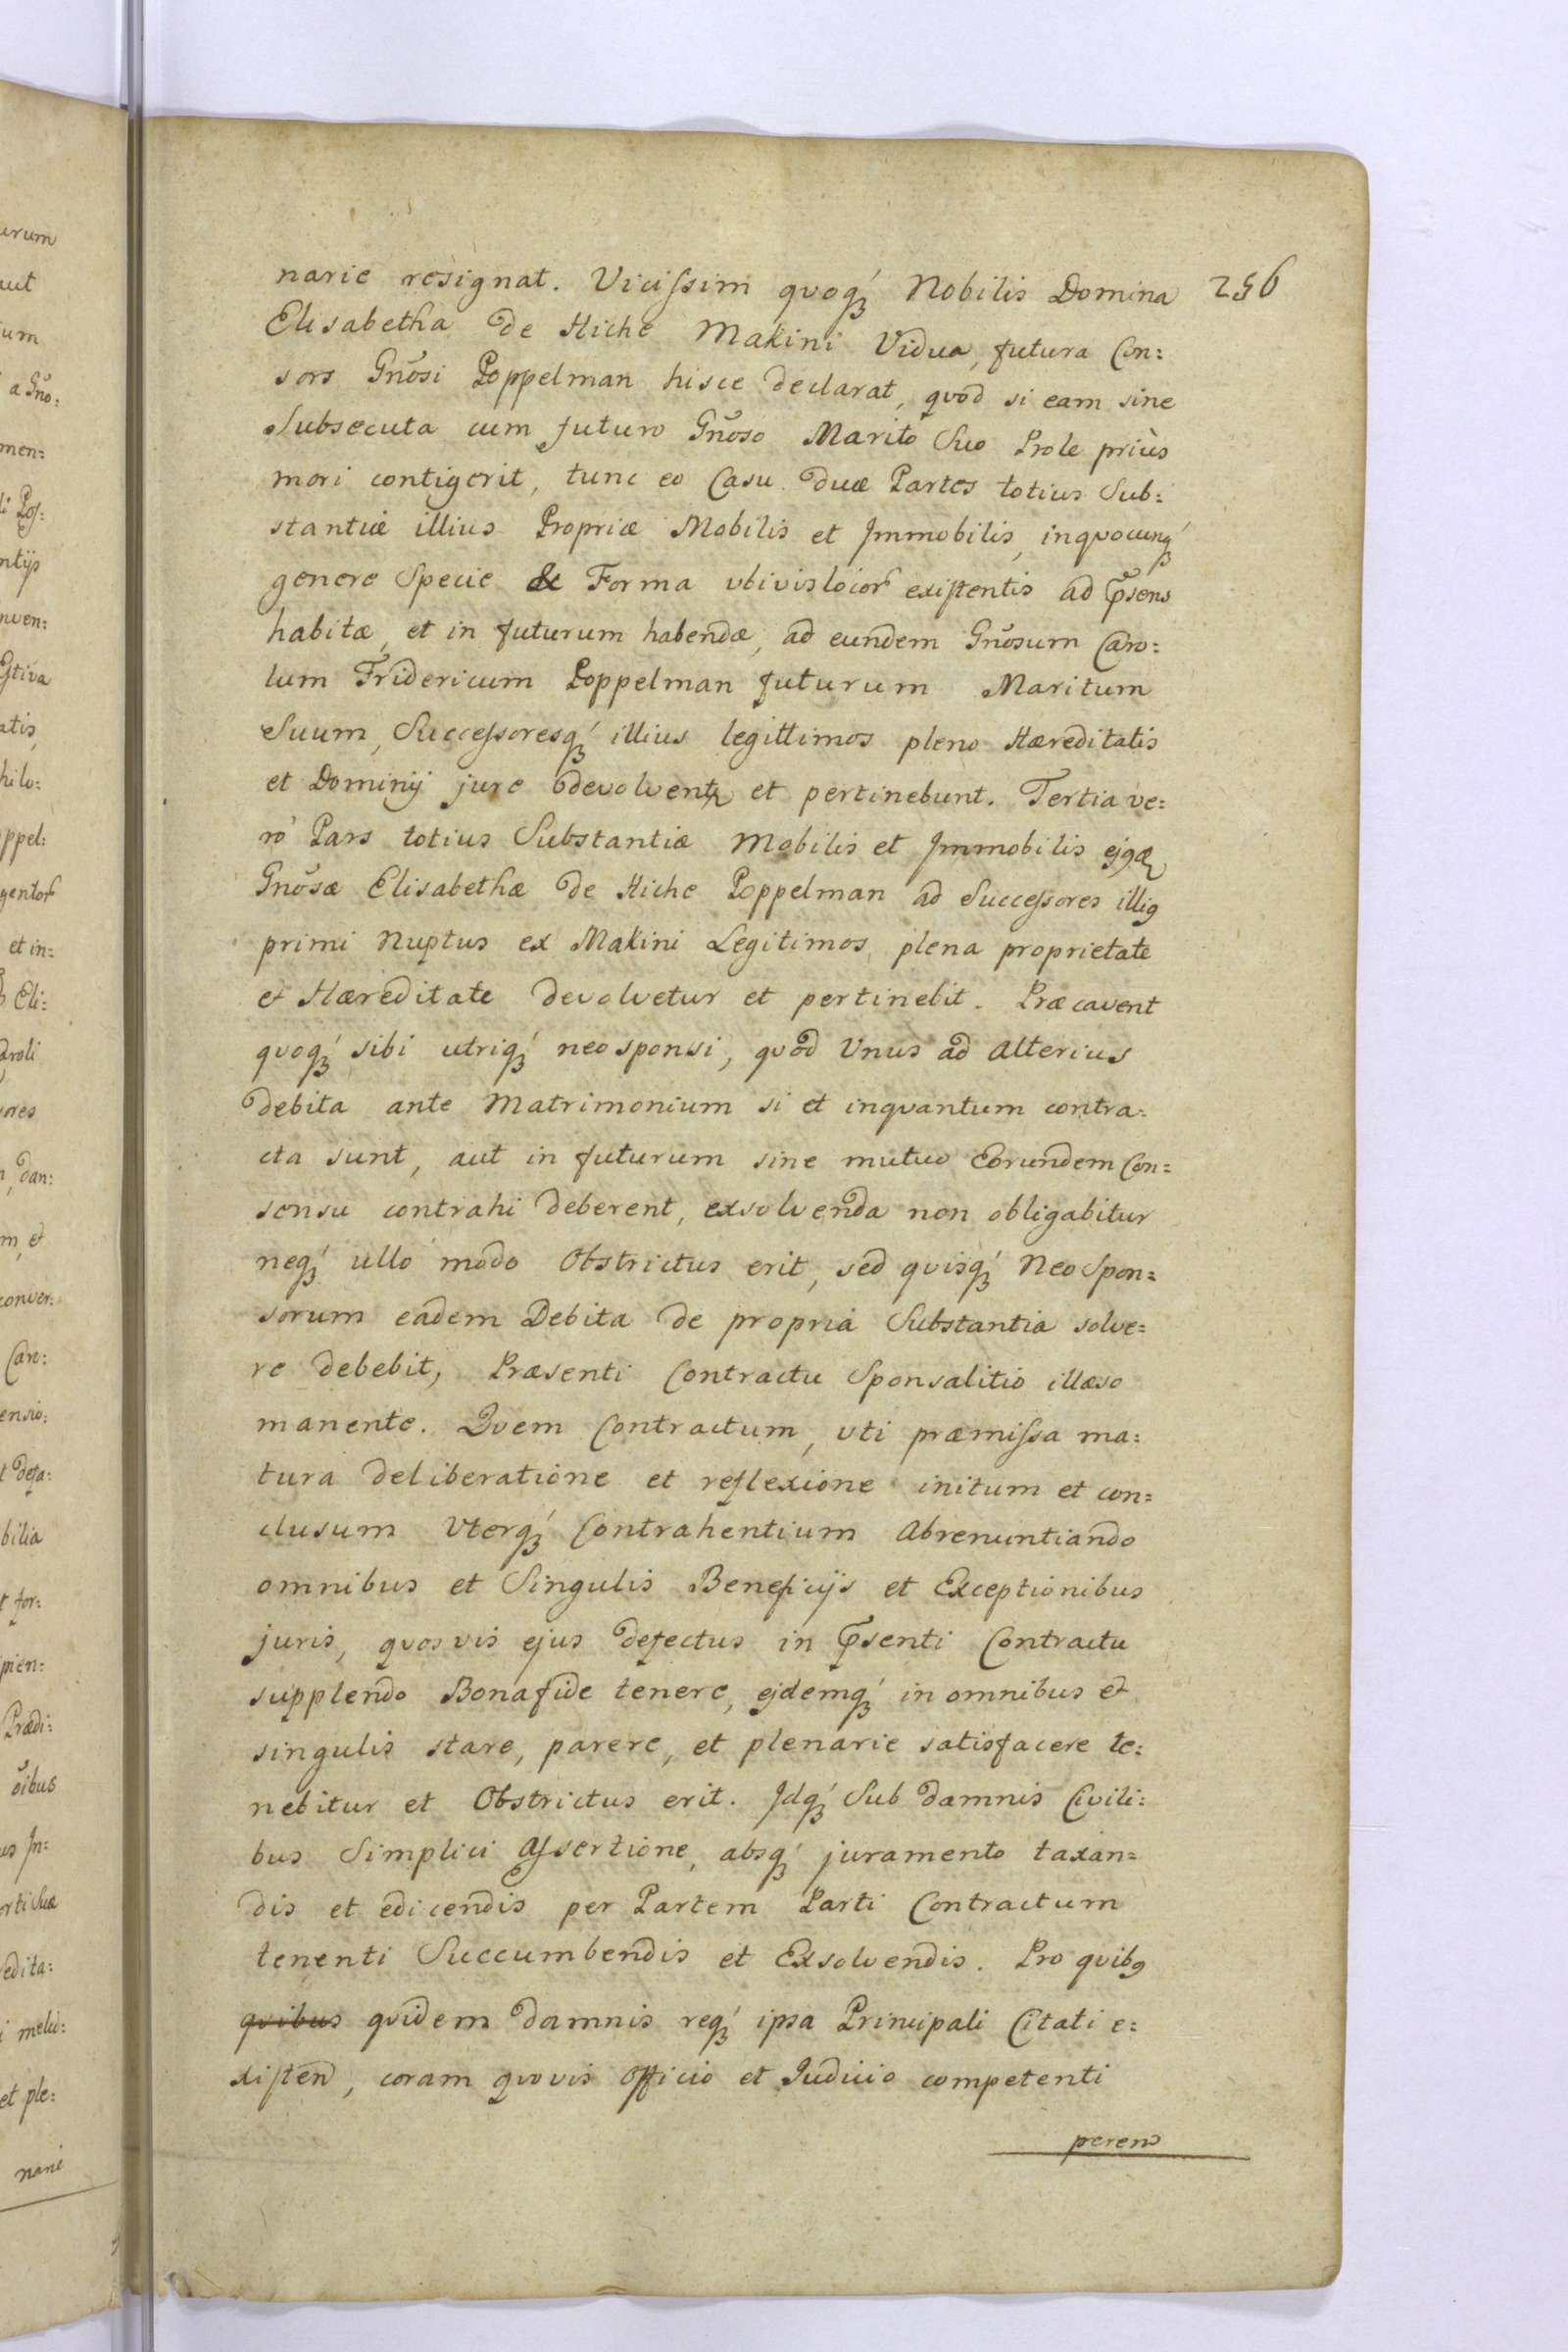 256
narie resignat. Vicissim quoq́ Nobilis Domina
Elisabetha de Hiche Makini Vidua, futura Con:
sors Gnōsi Poppelman hisce declarat, quod si eam sine
Subsecuta cum futuro Gnōso Marito Suo Prole priùs
mori contigerit, tunc eo Casu duæ Partes totius Sub:
stantiæ illius Propriæ Mobilis et Immobilis, inquocunq́
genere Specie & Forma ubivislocor existentis ad Pr̄sens
habitæ, et in futurum habendæ, ad eundem Gnōsum Caro:
lum Fridericum Poppelman futurum Maritum
Suum, Successoresq́ illius legittimos pleno Hæreditatis
et Dominij jure devolventr et pertinebunt. Tertia ve:
rò Pars totius Substantiæ Mobilis et Immobilis ejqæ
Gnōsæ Elisabethæ de Hiche Poppelman ad Successores illig
primi Nuptus ex Makini Legitimos plena proprietate
et Hæreditate devolvetur et pertinebit. Præcavent
quoq́ sibi utriq́ neosponsi, quod Unus ad alterius
debita ante Matrimonium si et inquantum contra:
cta sunt, aut in futurum sine mutuo Eorundem Con=
sensu contrahi deberent, exsolvenda non obligabitur
neq́ ullo modo Obstrictus erit, sed quisq́ Neo Spon=
sorum eadem Debita de propria Substantia solve=
re debebit, Præsenti Contractu Sponsalitio illæso
manente. Quem Contractum, uti præmissa ma:
tura deliberatione et reflexione initum et con=
clusum Uterq́ Contrahentium Abrenuntiando
omnibus et Singulis Beneficijs et Exceptionibus
juris, quosvis ejus defectus in Pr̄senti Contractu
supplendo Bonafide tenere, ejdemq́ in omnibus et
singulis stare, parere, et plenarie satisfacere te:
nebitur et Obstrictus erit. Idq́ Sub damnis Civili:
bus Simplici Assertione, absq́ juramento taxan=
dis et edicendis per Partem Parti Contractum
tenenti Succumbendis et Exsolvendis. Pro quibg
quibus quidem damnis req́ ipsa Principali Citati e:
xisten̄, coram quovis Officio et Judicio competenti
peren̄